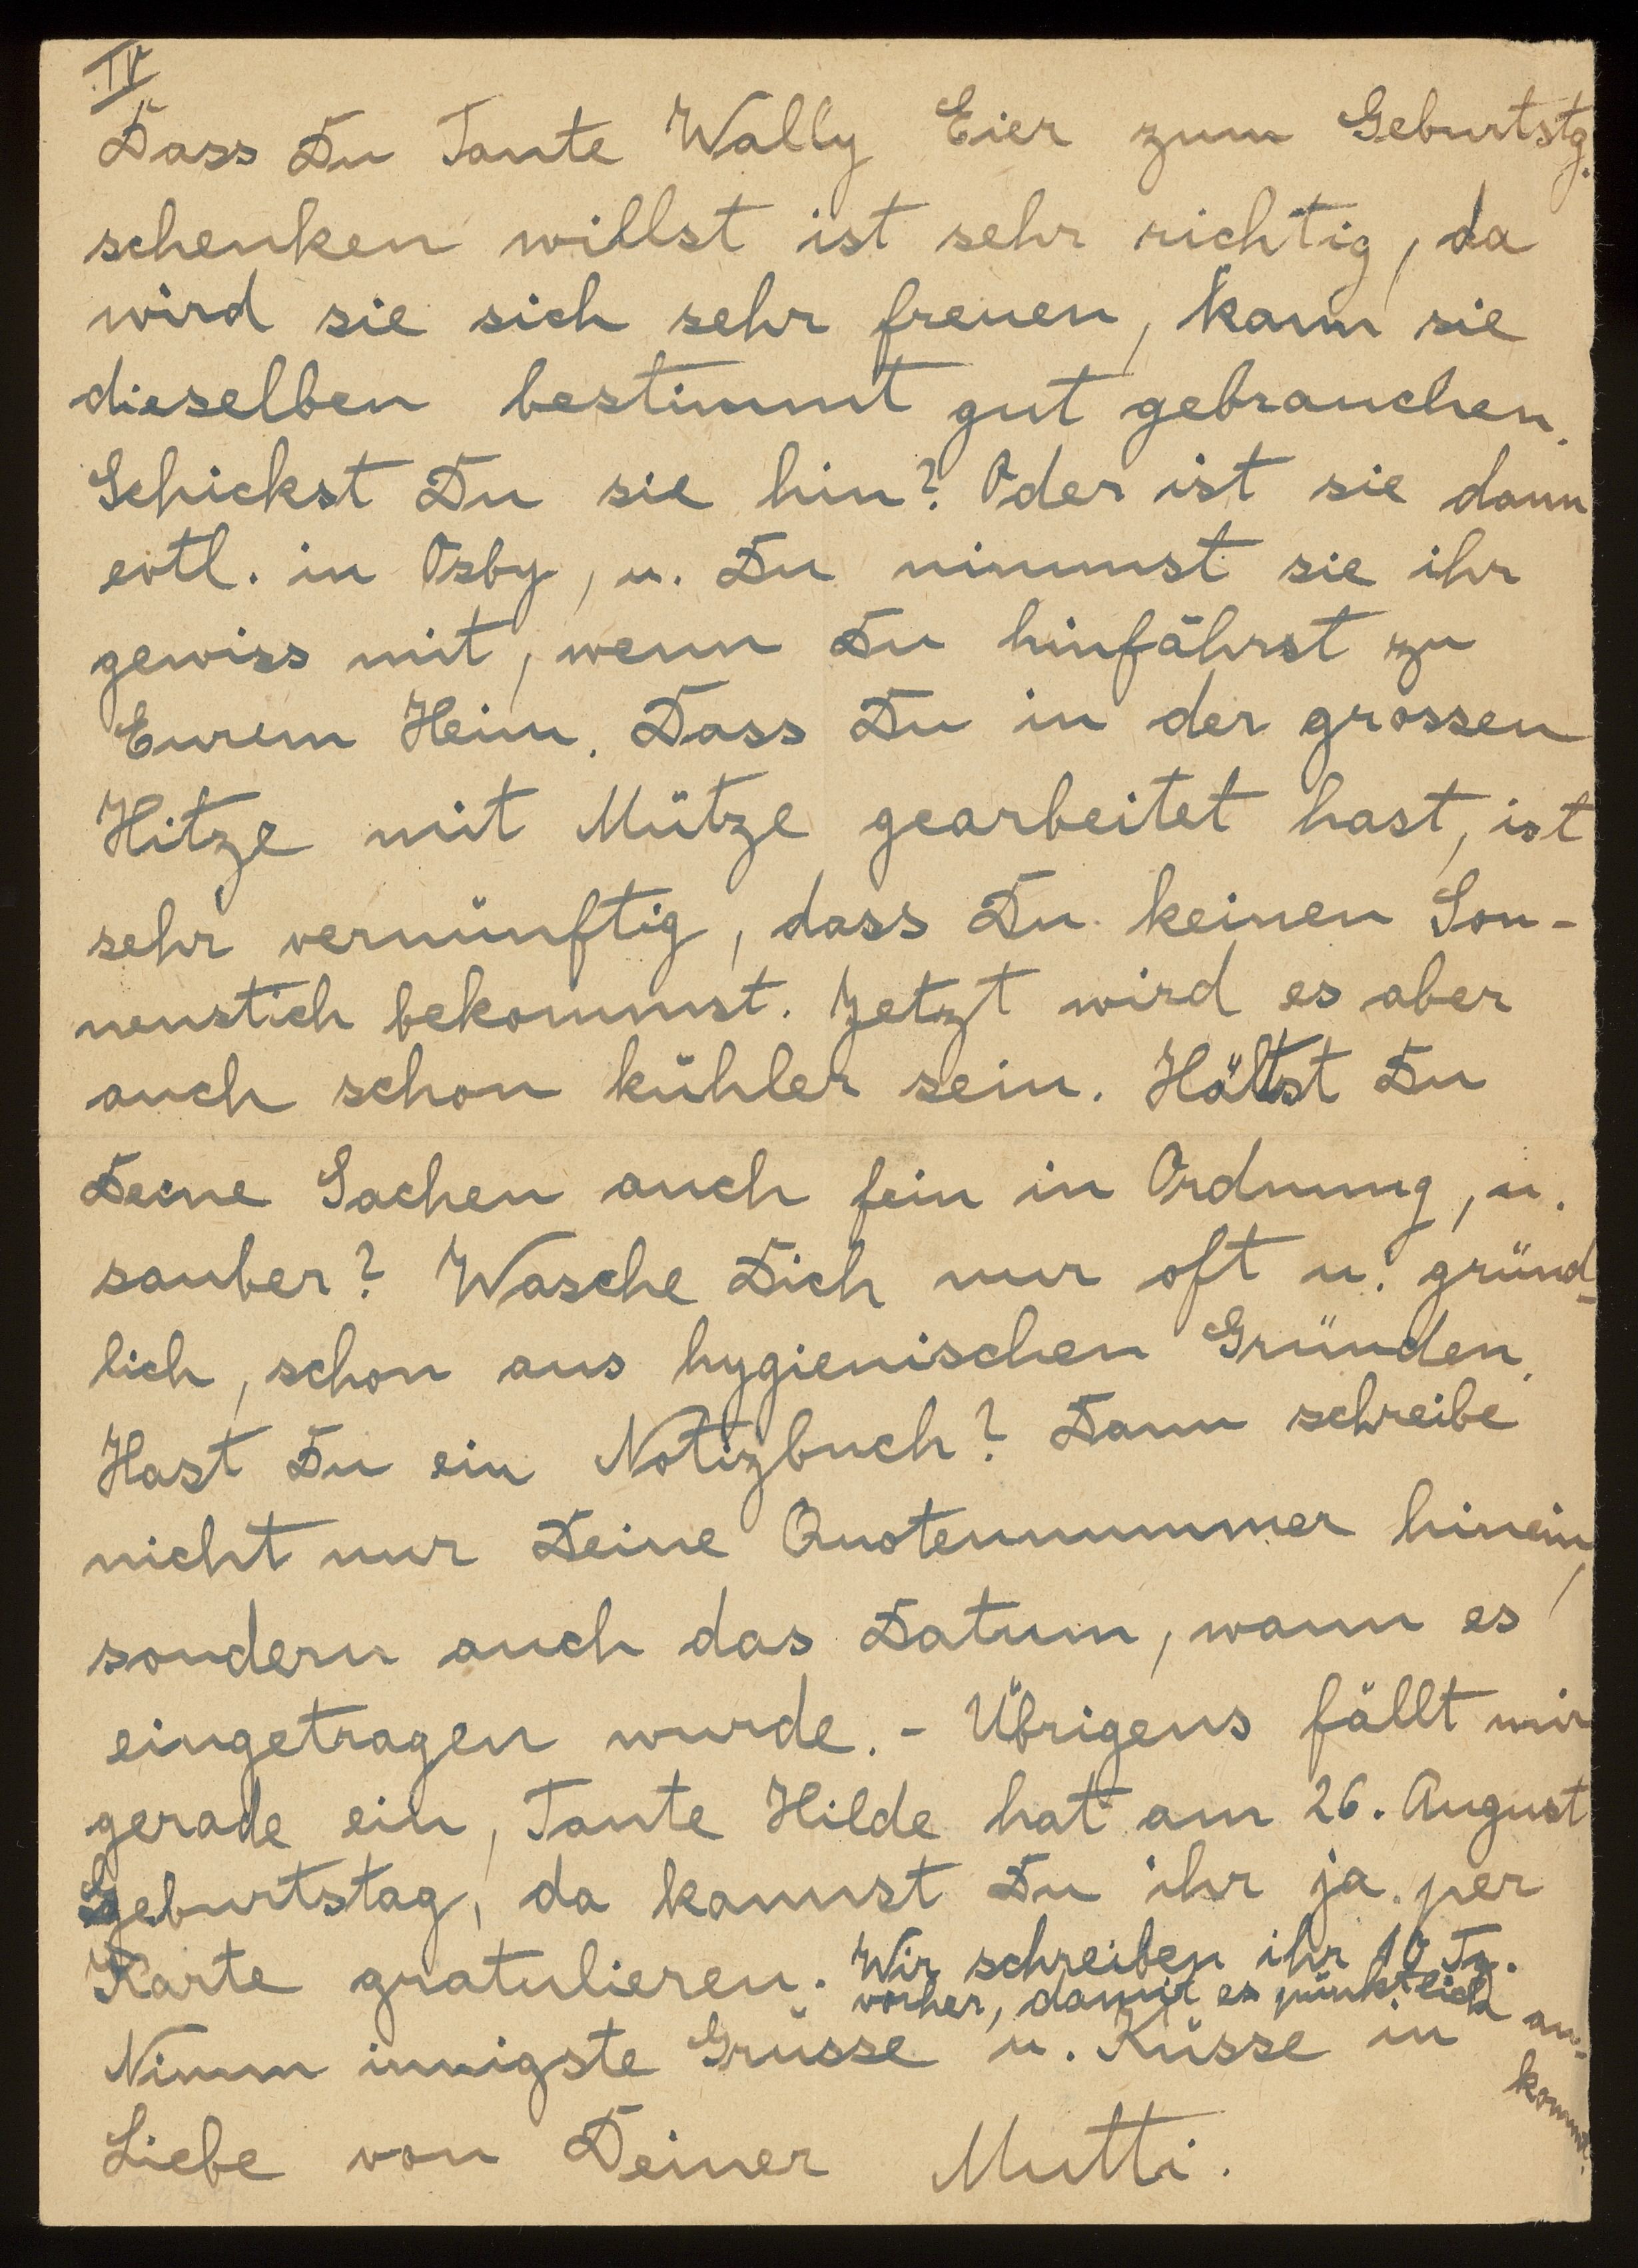 IV
Dass Du Tante Wally Eier zum Geburtstg.
schenken willst ist sehr richtig, da
wird sie sich sehr freuen, kann sie
dieselben bestimmt gut gebrauchen.
Schickst Du sie hin? Oder ist sie dann
evtl. in Osby, u. Du nimmst sie ihr
gewiss mit, wenn Du hinfährst zu
Eurem Heim. Dass Du in der grossen
Hitze mit Mütze gearbeitet hast, ist
sehr vernünftig, dass Du keinen Son-
nenstich bekommst. Jetzt wird es aber
auch schon kühler sein. Hältst Du
Deine Sachen auch fein in Ordnung, u.
sauber? Wasche Dich nur oft u. gründ-
lich, schon aus hygienischen Gründen.
Hast Du ein Notizbuch? Dann schreibe
nicht nur Deine Quotennummer hinein,
sondern auch das Datum, wann es
eingetragen wurde. - Übrigens fällt mir
gerade ein, Tante Hilde hat am 26. August
Geburtstag, da kannst Du ihr ja per
Karte gratulieren. Wir schreiben ihr 10 Tg.
vorher, damit es pünktlich an-
kommt.
Nimm innigste Grüsse u. Küsse in
Liebe von Deiner Mutti.